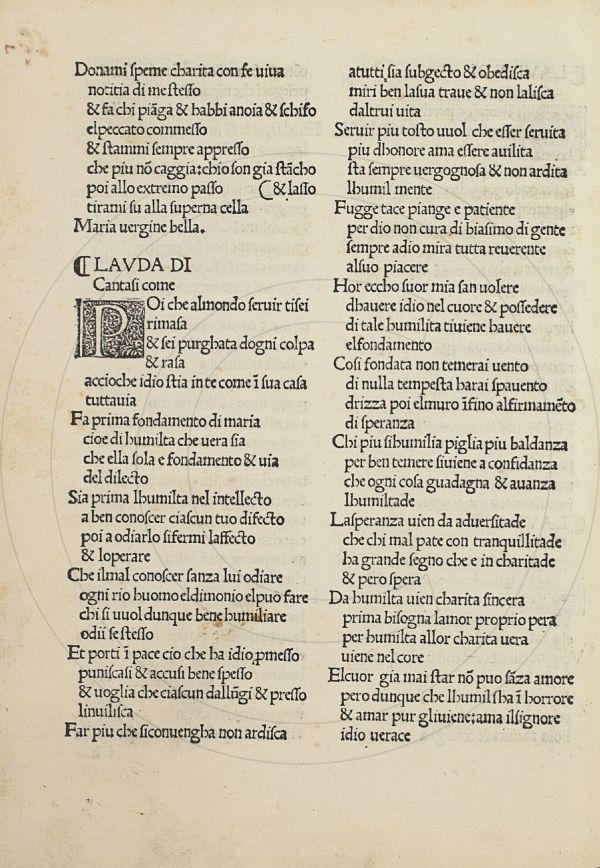 Donami ſpeme charita con fe uiua
notitia di me ſteſſo
& fa chi piāga & habbi anoia & ſchifo
elpeccato commeſſo
& ſtammi ſempre appreſſo
che piu nō caggia:chio ſon gia ſtācho
poi allo extremo paſſo ⁋& laſſo
tirami ſu alla ſuperna cella
Maria uergine bella.
⁋LAVDA DI
Cantaſi come
POi che almondo ſeruir tiſei
rimaſa
& ſei purghata dogni colpa
& raſa
accioche idio ſtia in te come ī ſua caſa
tuttauia
Fa prima fondamento di maria
cioe di humilta che uera ſia
che ella ſola e fondamento & uia
del dilecto
Sia prima lhumilta nel intellecto
a ben conoſcer ciaſcun tuo difecto
poi a odiarlo ſifermi laffecto
& loperare
Che ilmal conoſcer ſanza lui odiare
ogni rio huomo eldimonio elpuo fare
chi ſi uuol dunque bene humiliare
odii ſe ſteſſo
Et porti ī pace cio che ha idio ꝓmeſſo
puniſcaſi & accuſi bene ſpeſſo
& uoglia che ciaſcun dallūgi & preſſo
linuiliſca
Far piu che ſiconuengha non ardiſca
atutti ſia ſubgecto & obediſca
miri ben laſua traue & non laliſca
daltrui uita
Seruir piu toſto uuol che eſſer ſeruita
piu dhonore ama eſſere auilita
ſta ſempre uergognoſa & non ardita
lhumil mente
Fugge tace piange e patiente
per dio non cura di biaſimo di gente
ſempre adio mira tutta reuerente
alſuo piacere
Hor eccho ſuor mia ſan uolere
dhauere idio nel cuore & poſſedere
di tale humilita tiuiene hauere
elfondamento
Coſi fondata non temerai uento
di nulla tempeſta harai ſpauento
drizza poi elmuro īfino alfirmamēto
di ſperanza
Chi piu ſihumilia piglia piu baldanza
per ben temere ſiuiene a confidanza
che ogni coſa guadagna & auanza
lhumiltade
Laſperanza uien da aduerſitade
che chi mal pate con tranquillitade
ha grande ſegno che e in charitade
& pero ſpera
Da humilta uien charita ſincera
prima biſogna lamor proprio pera
per humilta allor charita uera
uiene nel core
Elcuor gia mai ſtar nō puo ſāza amore
pero dunque che lhumil ſha ī horrore
& amar pur gliuiene:ama ilſignore
idio uerace